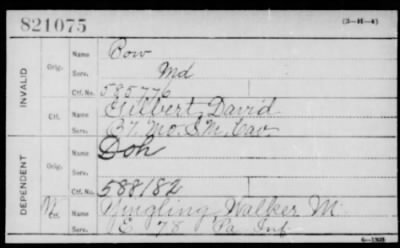 821075
(3-H-4)
INVALID
Orig.
Name Cow
Serv. Md
Ctf. No. 585776
Ctf.
Name Gilbert, David
Serv. B 7, Mo. S.M. Cav.
DEPENDENT
Orig.
Name Doh
Serv.
Ctf. No. 588182
W Ctf.
Name Yingling Walker M.
Serv. E 78 Pa Inf